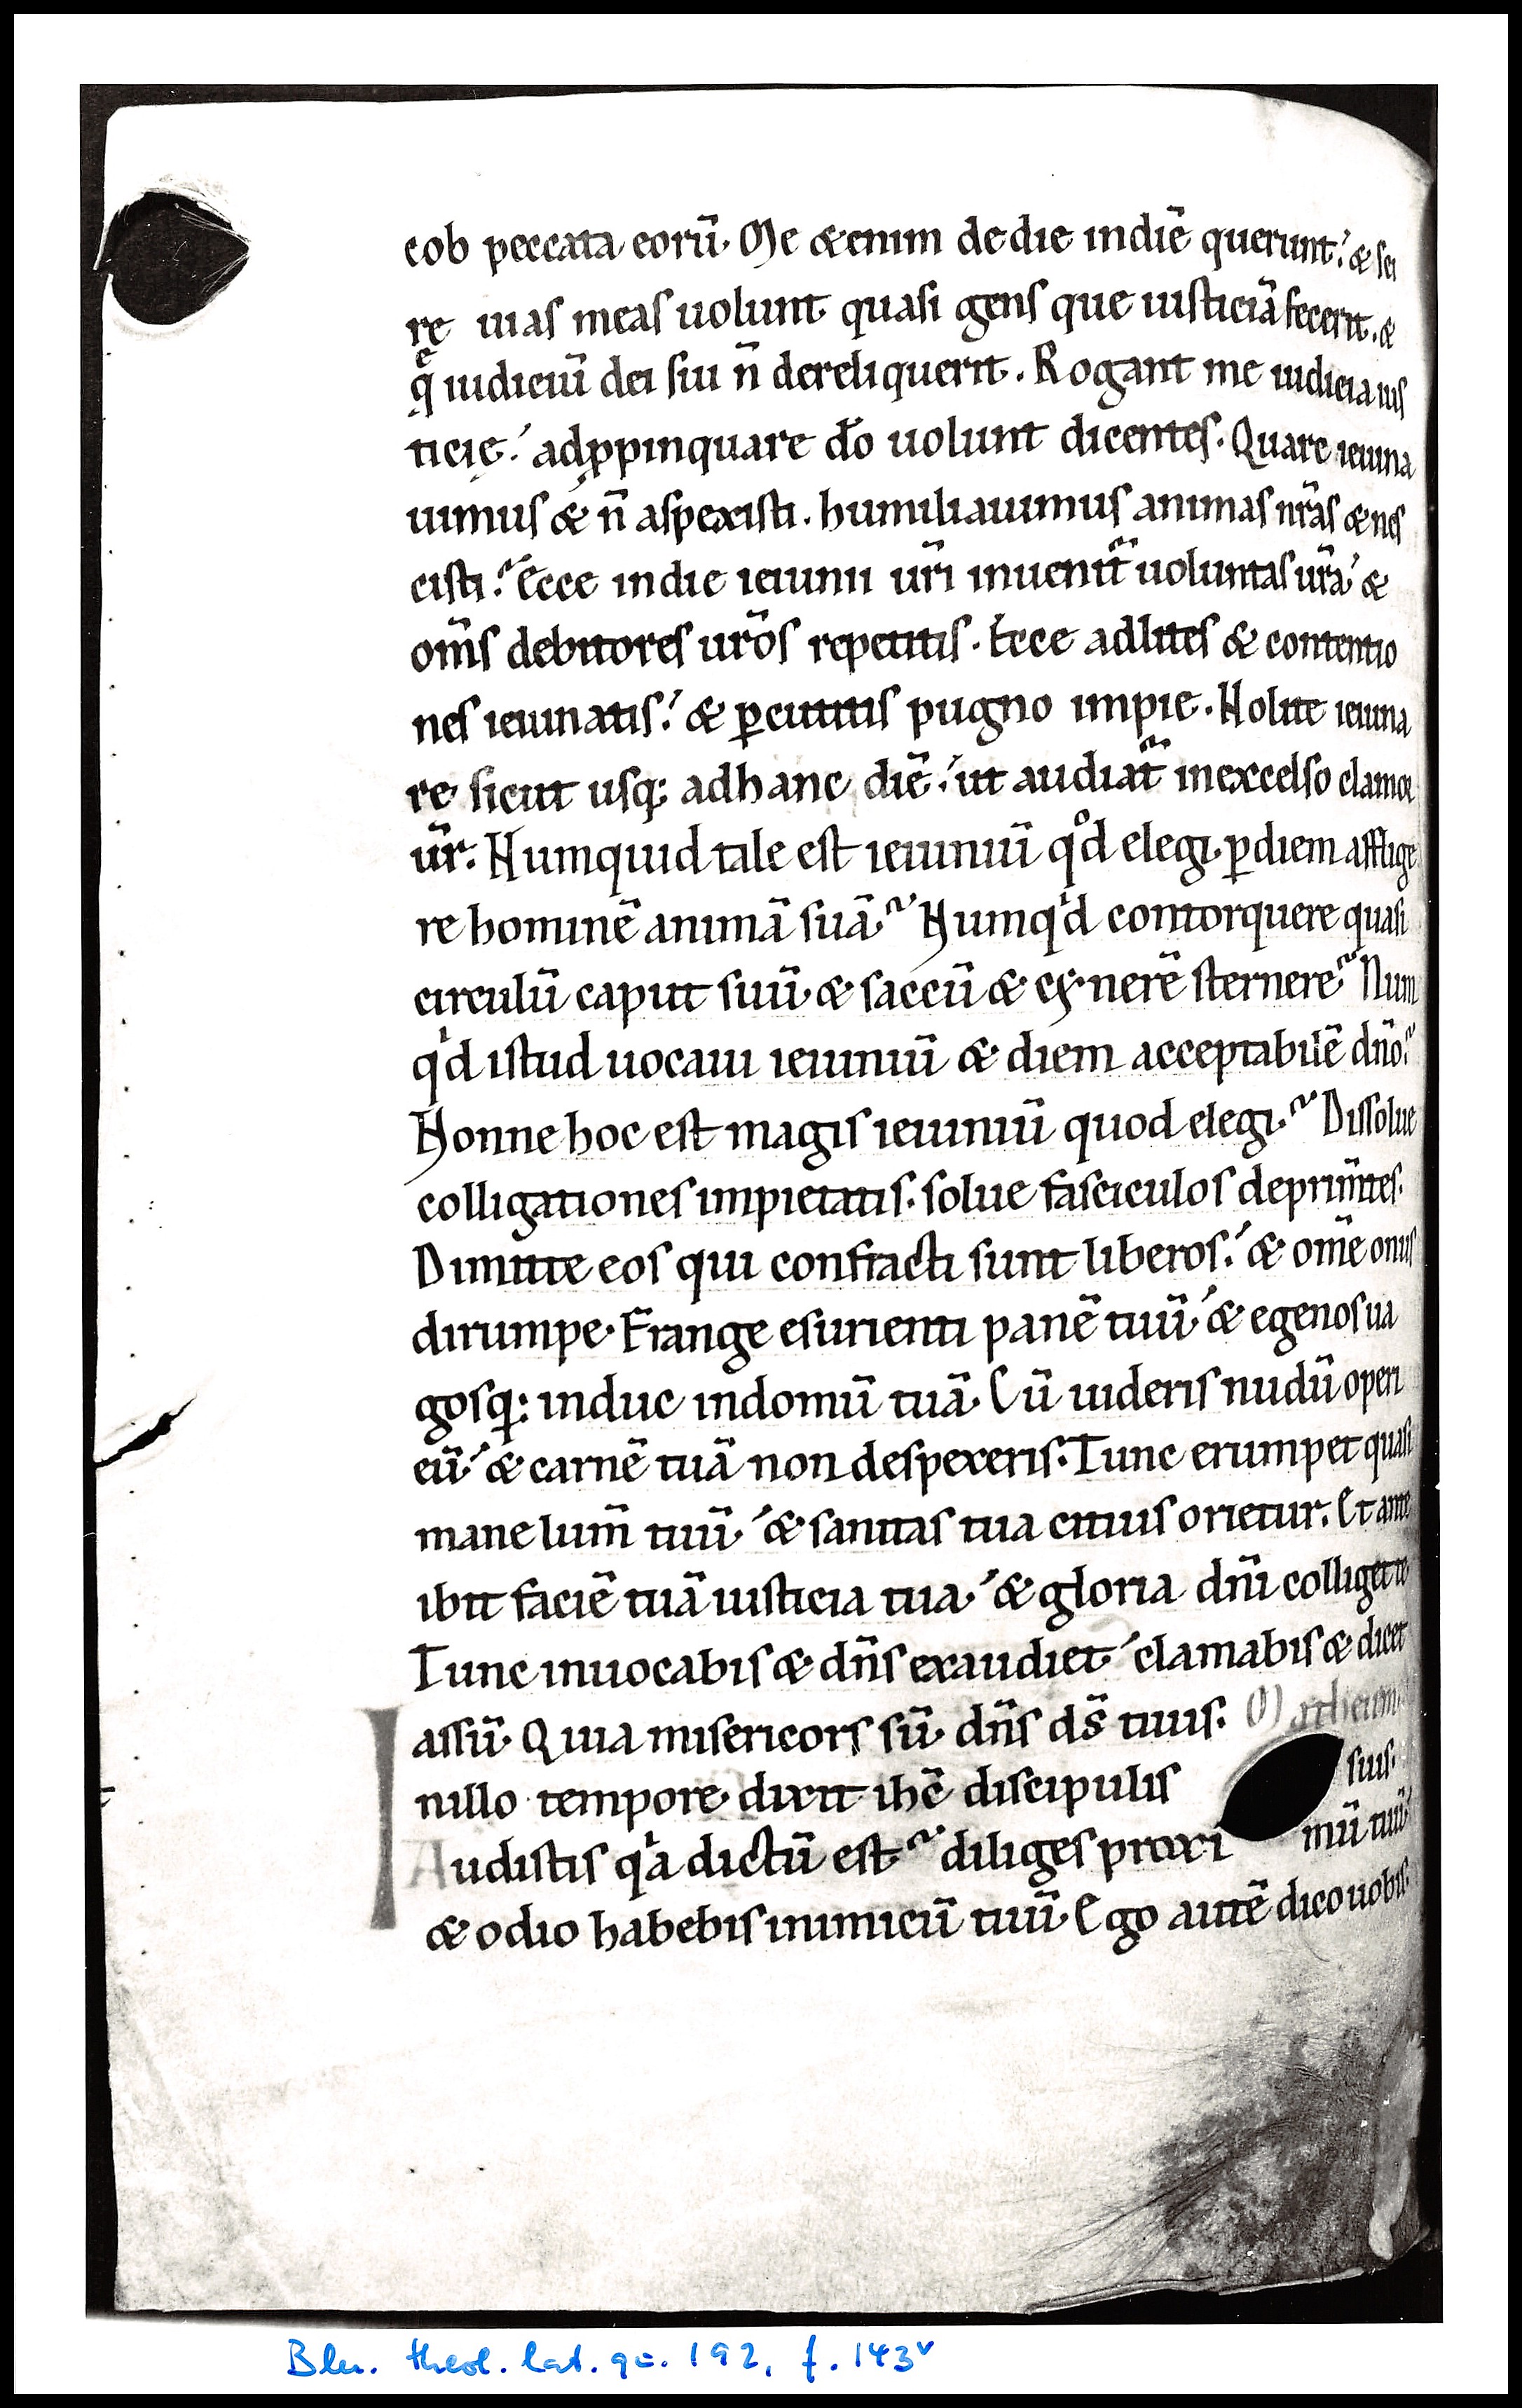 cob peccata eorū. Me & enim de die in diē querunt. & sci
rę uias meas uolunt quasi gens que iusticiā fecerit. &
q̄ę iudiciū dei sui n̄ dereliquerit. Rogant me iudicia ius
ticię. adꝓpinquare dō uolunt dicentes. Quare ieiuna
uimus & n̄ aspexisti. humiliauimus animas nr̄as & nes
cisti? Ecce in die ieiunii ur̄i inuenit̄ uoluntas ur̄a & 
om̄s debitores ur̄os repetitis. Ecce ad lites & contentio
nes ieiunatis. & ꝑcutitis pugno impie. Nolite ieiuna
re sicut usq; ad hanc diē. ut audiat̄ in excelso clamor
ūr. Numquid tale est ieiuniū qͦd elegi. ꝑ diem afflige
re hominē animā suā? Numqͥd contorquere quasi
circulū caput suū & saccū & cynerē sternere? Num
qͥd istud uocaui ieiuniū & diem acceptabilē dn̄o?
Nonne hoc est magis ieiuniū quod elegi? Dissolue
colligationes impietatis. solue fasciculos deprim̄tes.
Dimitte eos qui confracti sunt liberos. & om̄e onus
dirumpe. Frange esurienti panē tuū & egenos ua
gosq; induc in domū tuā. Cū uideris nudū operi
eū & carnē tuā non despexeris. Tunc erumpet quasi
mane lum̄ tuū & sanitas tua citius orietur. Et ante
ibit faciē tuā iusticia tua & gloria dn̄i colliget te
Tunc inuocabis & dn̄s exaudiet clamabis & dicet
assū. Quia misericors sū dn̄s ds̄ tuus. Matheum.
I nillo tempore dixit ihē discipulis suis.
Audistis qͣa dictū est? diliges proxi mū tuū
& odio habebis inimicū tuū. Ego autē dico uobis.
Bln. theol. lat. qu. 192, f. 143v